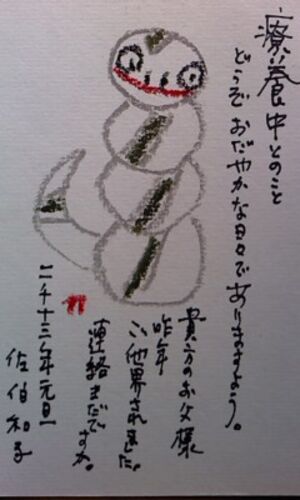 療養中とのこと
どうぞ おだやかな日々でありますよう。
貴方のお父様
昨年
ご他界されました。
連絡まだですか。
二千十三年元旦
佐伯和子